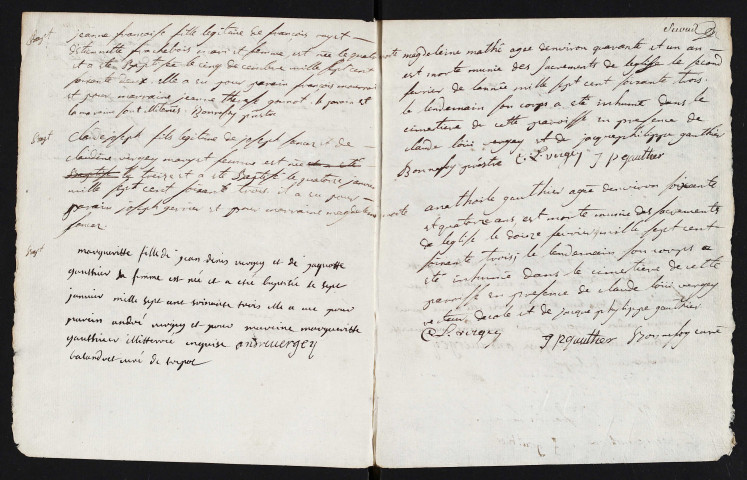 Bapt
jeanne francoise fille legitime de françois
et femme, est née le quatre
et a ete Baptisée le cinq decembre mille sept cent
soixante deux. elle a eu pour parain françois
et pour marraine jeanne therese le parain et
la maraine sont illiterés Bonnefoy
Bapt
claude joseph fils legitime de joseph et de
claudine vergey mary et femme est né
baptisé le treize et a été Baptisé le quatorze janvier
mille sept cent soixante trois. il a eu pour
parain joseph et pour marraine magdeleine
Bapt
margueritte fille de jean denis vergey et de jaquotte
gauthier sa femme est née et a ete baptisée le sept
janvier mille sept cent soixante trois elle a eue pour
parein andré vergey et pour mareine marguerite
gauthier illitteree enquise andre vergey
balandret curé de
morte magdeleine mathé agée d'environ quarante et un an
est morte munie des sacrements de l'eglise le second
fevrier de l'année mille sept cent soixante trois.
le lendemain son corps a ete inhumé dans le
cimetiere de cette paroisse en presence de
claude loüi vergey et de jacque philippe gauthier
Bonnefoy C. L. vergey J p gauthier
morte
anathoile gauthier agée d'environ soixante
et quatorze ans est morte munie des sacrements
de l'eglise le douze fevrier mille sept cent
soixante trois; le lendemain son corps a
ete inhumé dans le cimetiere de cette
paroisse en presence de claude loüi vergey
recteur d'ecole et de jacque philippe gauthier
C. L. vergey J p gauthier Bonnefoy curé